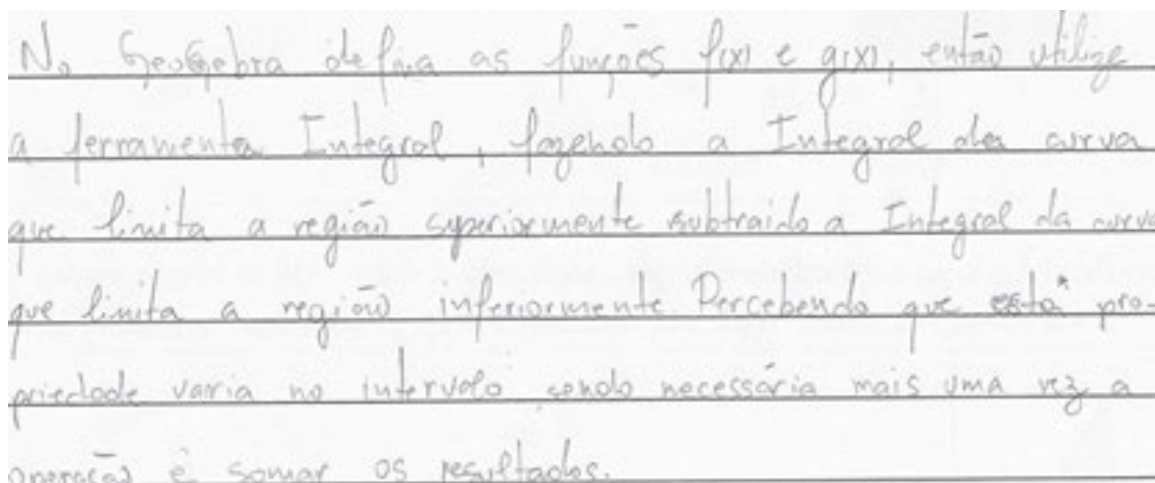 No GeoGebra defina as funções f(x) e g(x), então utilize
a ferramenta Integral, fazendo a Integral da curva
que limita a região superiormente subtraido a Integral da curva
que limita a região inferiormente. Percebendo que esta pro-
priedade varia no intervalo sendo necessária mais uma vez a
operação e somar os resultados.